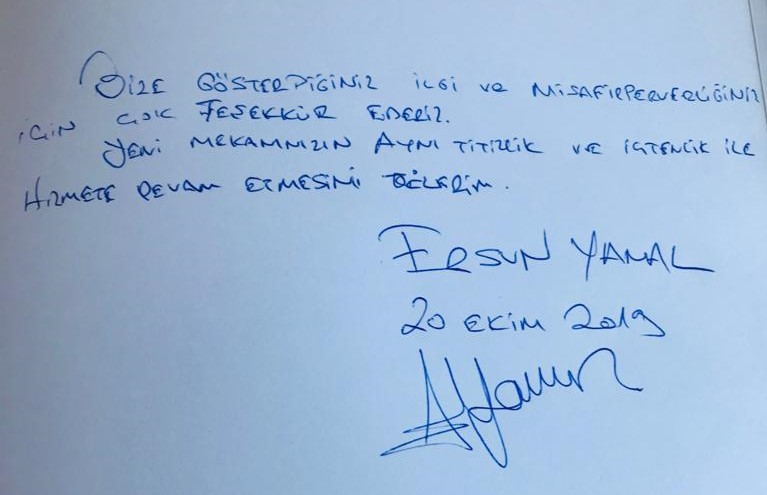 Bize GÖSTERDİĞİNİZ İLGİ ve MİSAFİRPERVERLİĞİNİZ
İÇİN ÇOK TEŞEKKÜR EDERİZ.
YENİ MEKANINIZIN AYNI TİTİZLİK VE İÇTENLİK İLE
HİZMETE DEVAM ETMESİNİ DİLERİM.
ERSUN YANAL
20 EKİM 2019